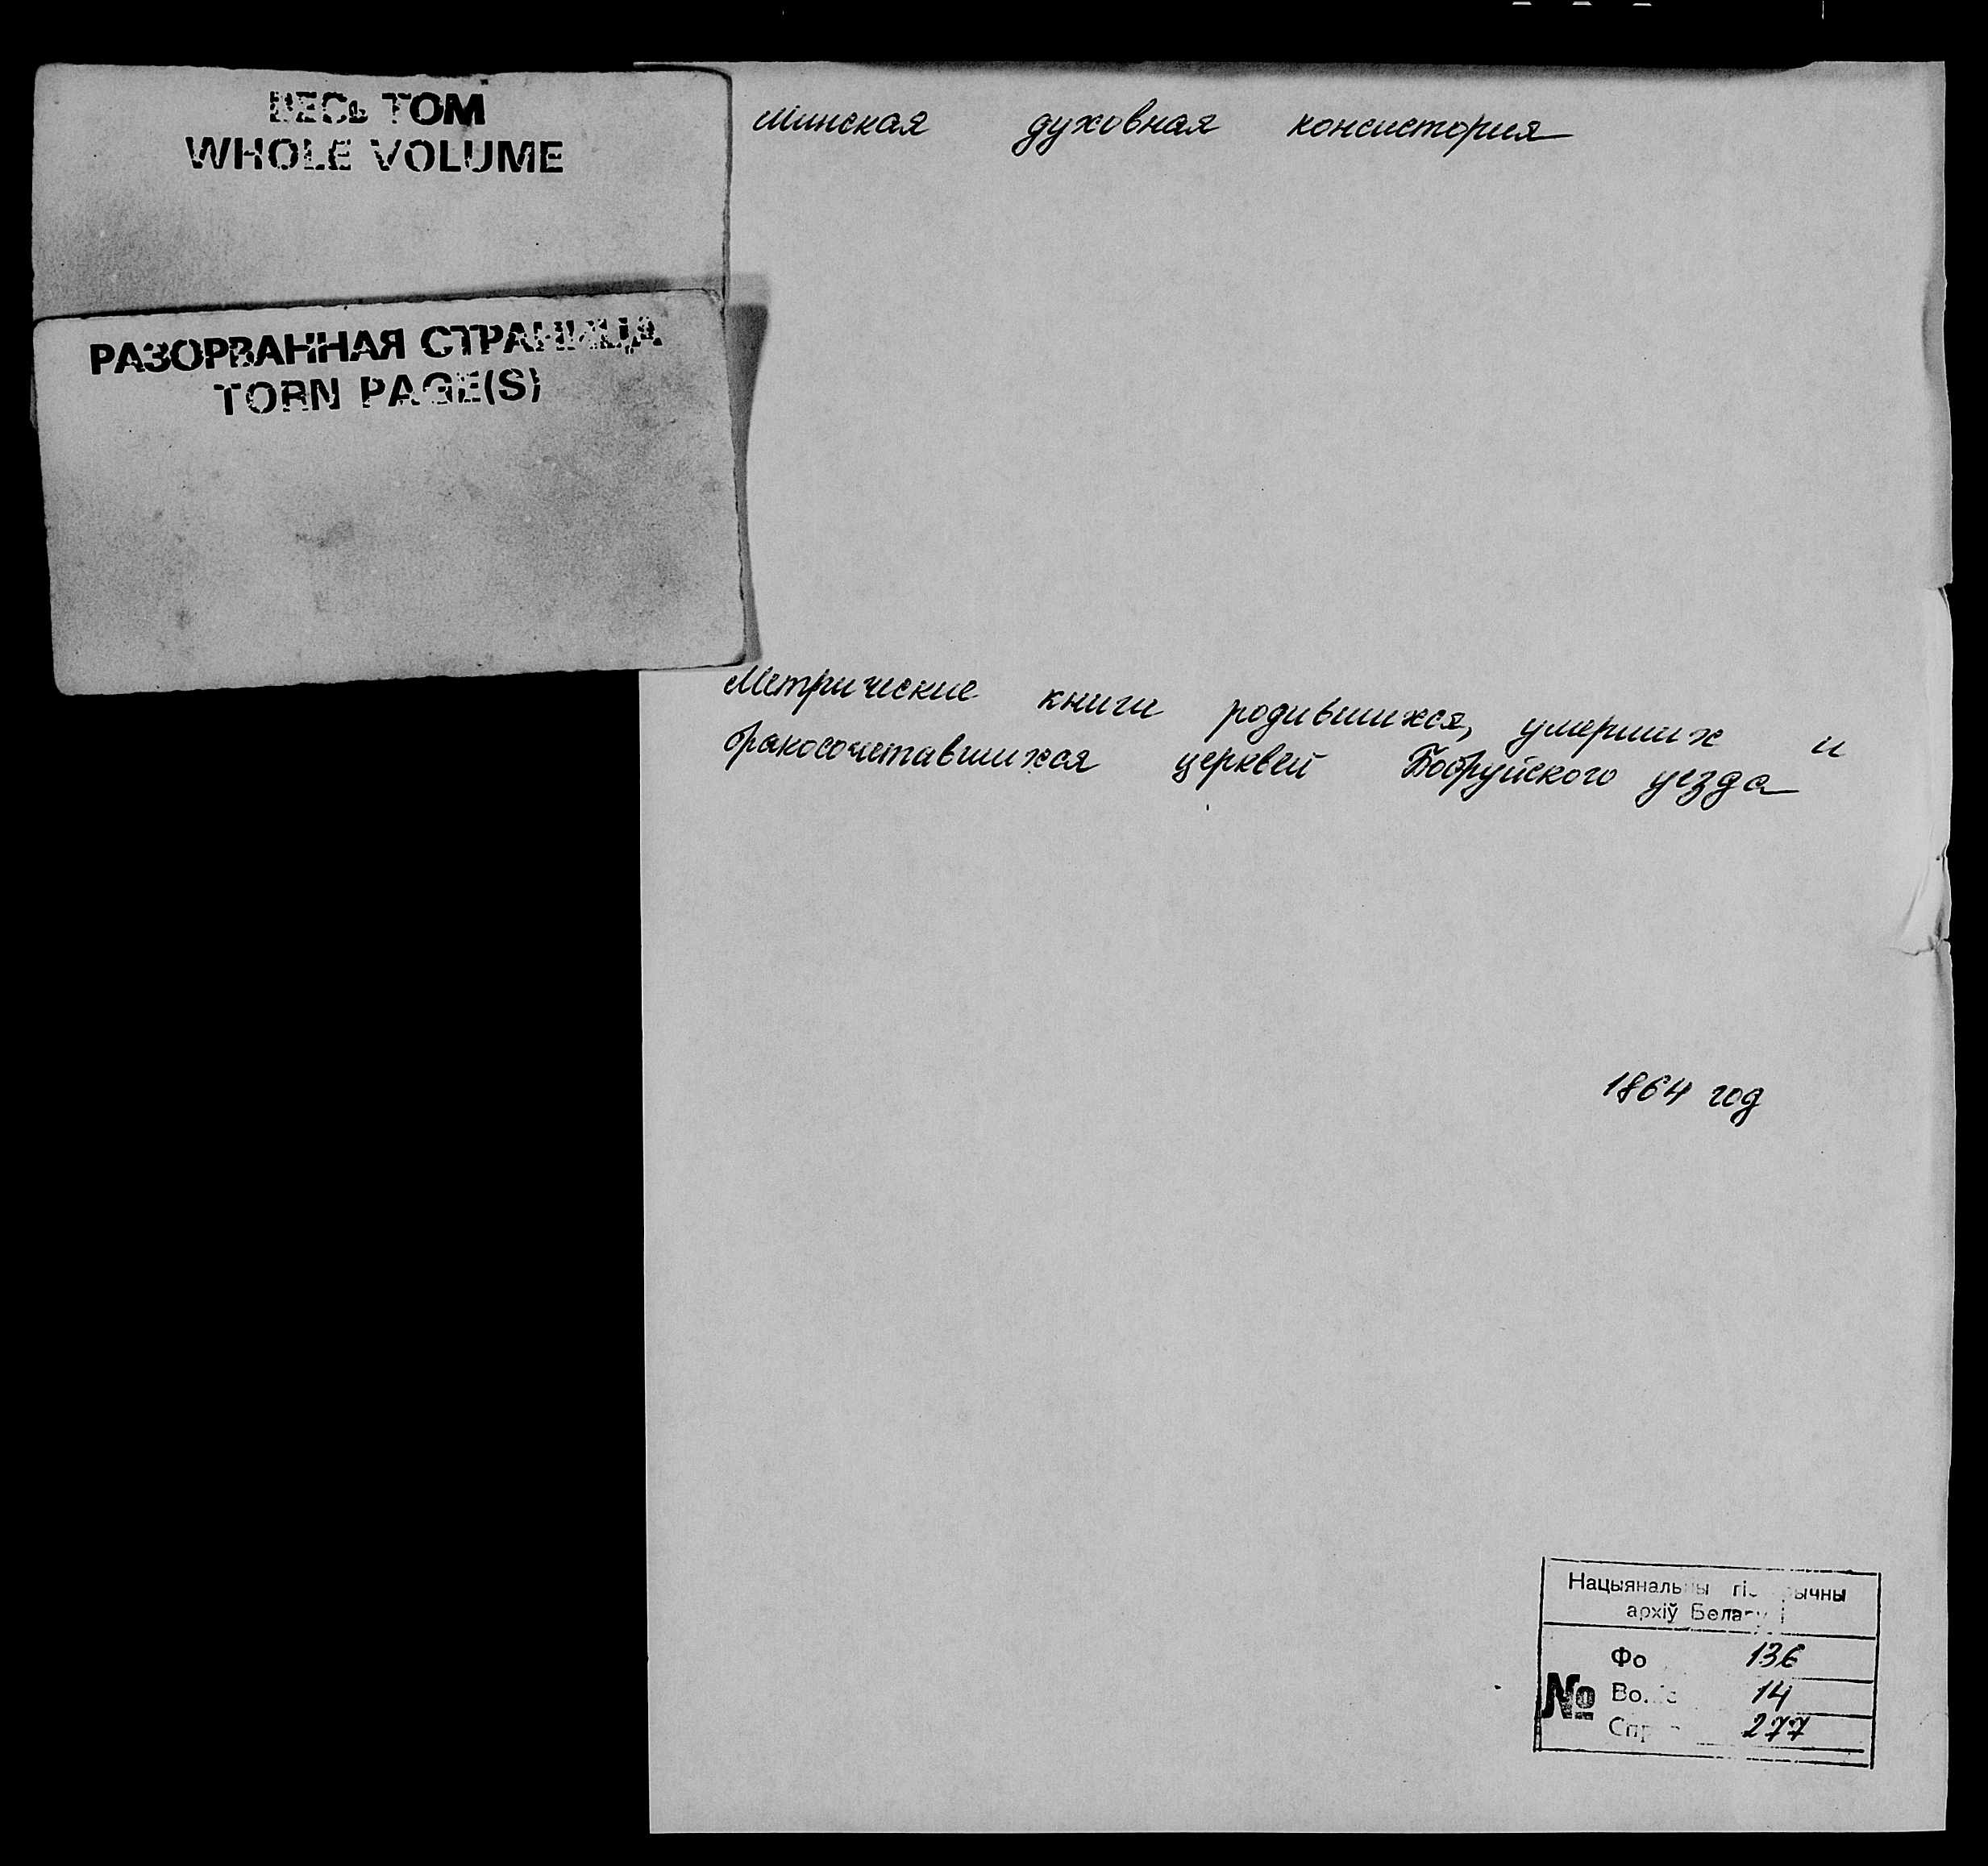 ВЕСЬ ТОМ
WHOLE VOLUME
РАЗОРВАННАЯ СТРАНИЦА
TORN PAGE(S)
Минская духовная консистория
Метрические книги родившихся, умерших и
бракосочетавшихся церквей Бобруйского уезда
1864 год
архіў
№
136
14
277